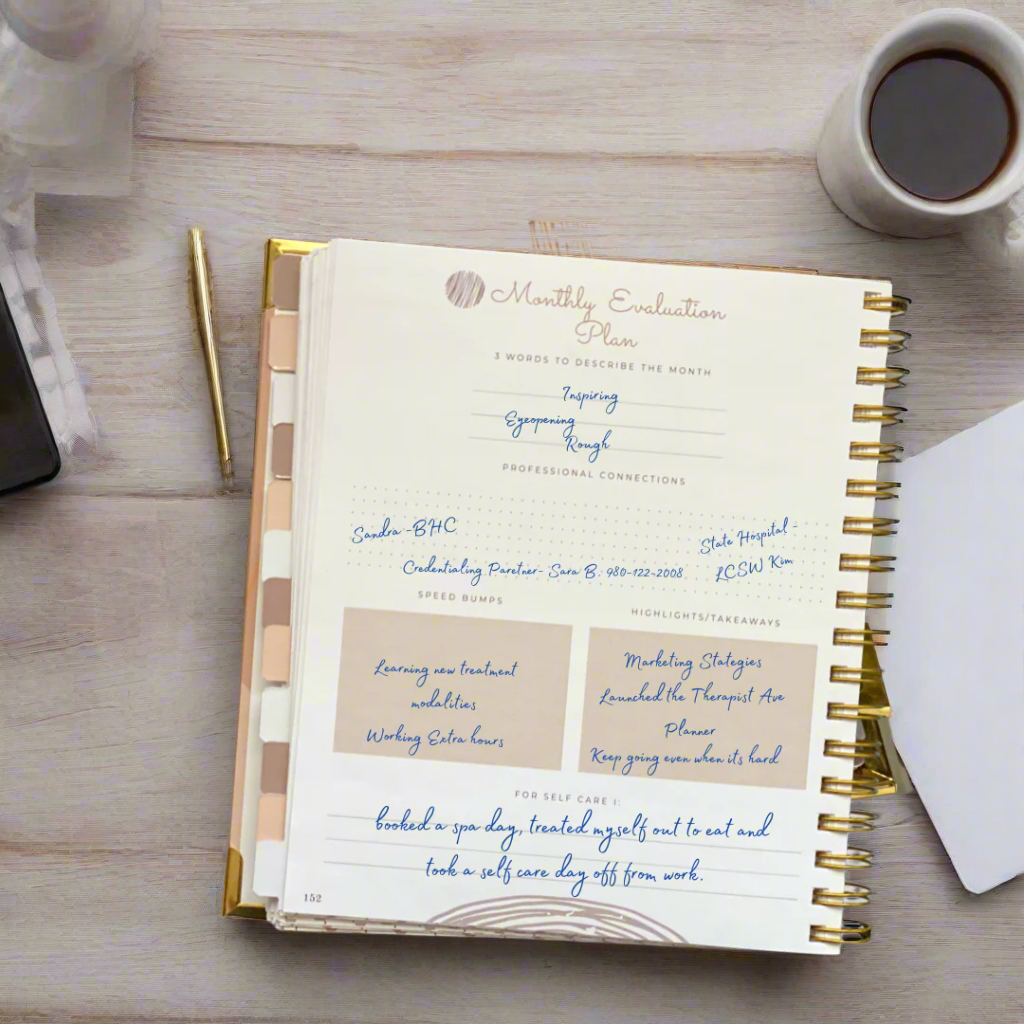 Monthly Evaluation
Plan
3 WORDS TO DESCRIBE THE MONTH
Inspiring
Eyeopening
Rough
PROFESSIONAL CONNECTIONS
Sandra -BHC
State Hospital -
LCSW Kim
Credentialing Paretner- Sara B. 980-122-2008
SPEED BUMPS
Learning new treatment
modalities
Working Extra hours
HIGHLIGHTS/TAKEAWAYS
Marketing Stategies
Launched the Therapist Ave
Planner
Keep going even when its hard
FOR SELF CARE I:
booked a spa day, treated myself out to eat and
took a self care day off from work.
152